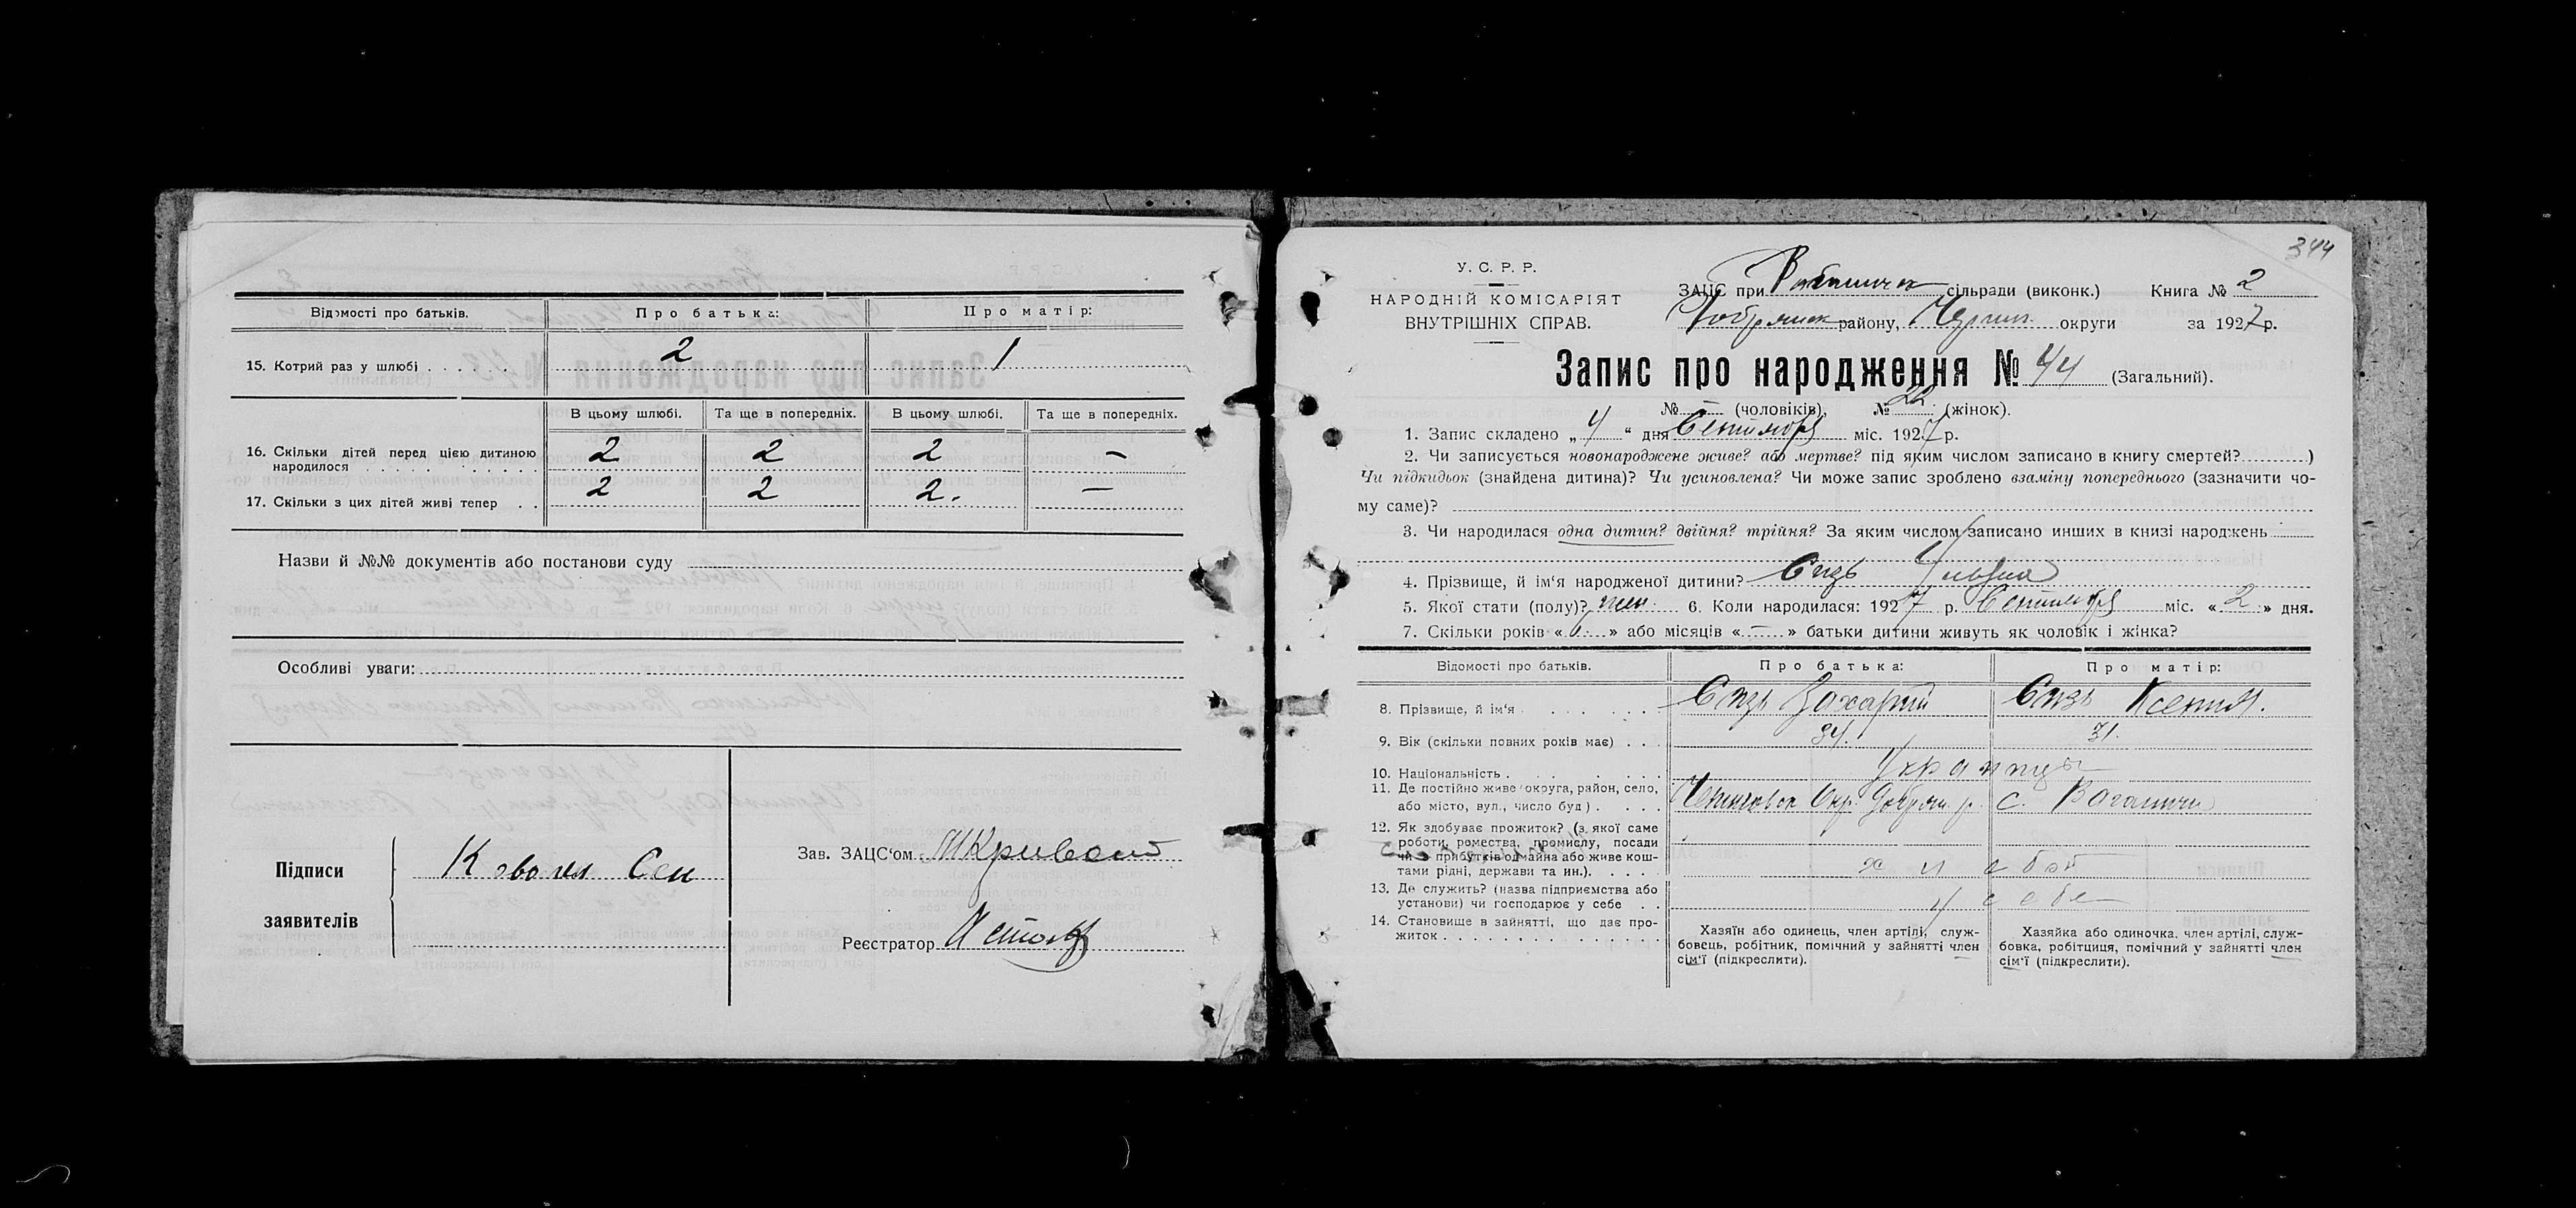 Відомості про батьків. Про батька: Про матір:
15. Котрий раз у шлюбі 2 1
В цьому шлюбі. Та ще в попередніх. В цьому шлюбі. Та ще в попередніх.
16. Скільки дітей перед цією дитиною 2 2 2 —
народилося
17. Скільки з цих дітей живі тепер 2 2 2. —
Назви й №№ документів або постанови суду
Особливі уваги:
Підписи
заявителів
Зав. ЗАЦС'ом
Реєстратор
344
У. С. Р. Р.
НАРОДНІЙ КОМІСАРІЯТ
ВНУТРІШНІХ СПРАВ.
ЗАЦС при сільради (виконк.) Книга № 2
Добрянск району, Черниг. округи за 1927 р.
Запис про народження № 44 (Загальний).
№ — (чоловіків), № 22 (жінок).
1. Запис складено „4“ дня Сентября міс. 1927 р.
2. Чи записується новонароджене живе? або мертве? під яким числом записано в книгу смертей? )
Чи підкидьок (знайдена дитина)? Чи усиновлена? Чи може запис зроблено взаміну попереднього (зазначити чо-
му саме)?
3. Чи народилася одна дитин? двійня? трійня? За яким числом записано инших в книзі народжень
4. Прізвище, й ім'я народженої дитини?
5. Якої стати (полу)? жен. 6. Коли народилася: 1927 р. Сентября міс. «2» дня.
7. Скільки років «6» або місяців «—» батьки дитини живуть як чоловік і жінка?
Відомості про батьків. Про батька: Про матір:
8. Прізвище, й ім'я Захарий Ксения.
9. Вік (скільки повних років має) 34. 31.
10. Національність Украинцы
11. Де постійно живе округа, район, село, Окр. Добрян. р. с.
або місто, вул., число буд)
12. Як здобуває прожиток? (з якої саме
роботи, ремества, промислу, посади
чи з прибутків одмайна або живе кош-
тами рідні, держави та ин.).
13. Де служить? (назва підприємства або
установи) чи господарює у себе у себе
14. Становище в зайнятті, що дає про-
житок
Хазяїн або одинець, член артілі, служ-
бовець, робітник, помічний у зайнятті член
сім'ї (підкреслити).
Хазяйка або одиночка, член артілі, служ-
бовка, робітциця, помічний у зайнятті член
сім'ї (підкреслити).